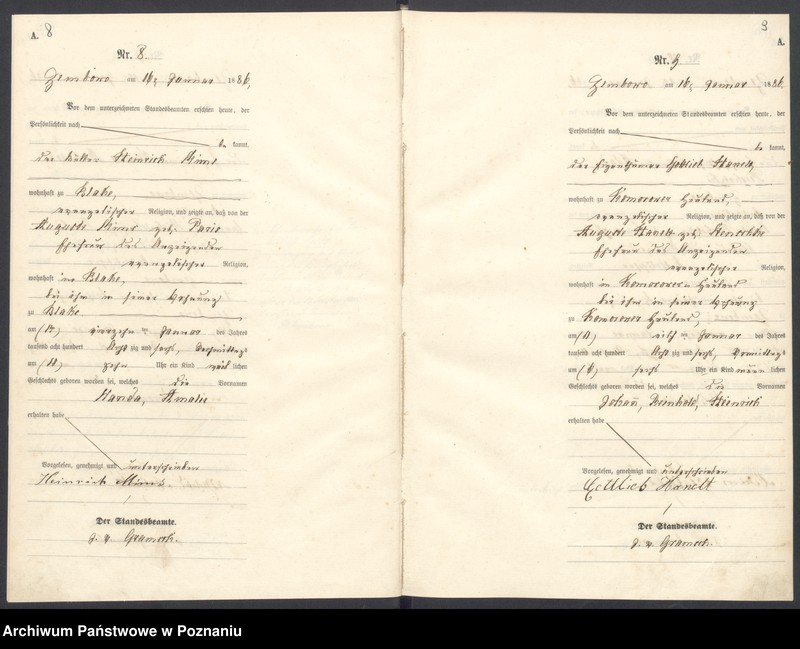 A. 8
Nr. 8.
Zembowo am 16ten Januar 1886,
Vor dem unterzeichneten Standesbeamten erschien heute, der
Persönlichkeit nach
be kannt,
der Heinrich
wohnhaft zu
evangelischer Religion, und zeigte an, daß von der
Auguste geb.
Ehefrau des Anzeigenden
evangelischer Religion,
wohnhaft in
bei ihm in seiner Wohnung
zu
am (14) vierzehn ten Januar des Jahres
tausend acht hundert Acht zig und sechs, Vormittags
um zehn Uhr ein Kind weib lichen
Geschlechts geboren worden sei, welches die Vornamen
Wanda, Amalie
erhalten habe
Vorgelesen, genehmigt und unterschrieben
Heinrich
Der Standesbeamte.
9
A.
Nr. 9
Zembowo am 16ten Januar 1886.
Vor dem unterzeichneten Standesbeamten erschien heute, der
Persönlichkeit nach
be kannt,
der Eigenthümer Gottlieb Hanelt,
wohnhaft zu Komorower Hauland,
evangelischer Religion, und zeigte an, daß von der
Auguste Hanelt geb.
Ehefrau des Anzeigenden
evangelischer Religion,
wohnhaft in Komorower Hauland
bei ihm in seiner Wohnung
zu Komorower Hauland,
am elf ten Januar des Jahres
tausend acht hundert Acht zig und sechs, Vormittags
um (6) sechs Uhr ein Kind männ lichen
Geschlechts geboren worden sei, welches die Vornamen
Johann, Reinhold, Heinrich
erhalten habe
Vorgelesen, genehmigt und unterschrieben
Gottlieb Hanelt
Der Standesbeamte.
Archiwum Państwowe w Poznaniu